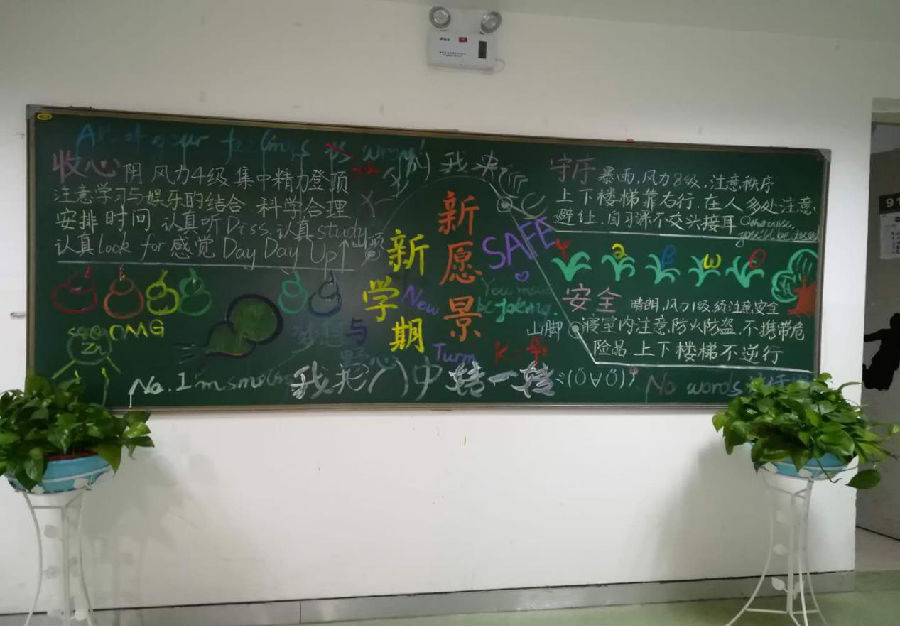 All of your feelings is wrong!
收心 阴 风力4级 集中精力登顶
注意学习与娱乐的结合 科学合理
安排时间 认真听Diss 认真study
认真look for 感觉 Day Day Up!
OMG
Zz
我来
新愿景
新学期
New
Turn
SAFE
You must be joking
守序 暴雨,风力8级,注意秩序
上下楼梯靠右行,在人多处注意
避让,自习课不交头接耳
安全 晴朗,风力1级,须注意安全
山脚 寝室内注意防火防盗,不携带危
险品 上下楼梯不逆行
No. I'm
我把心中转一转
No words